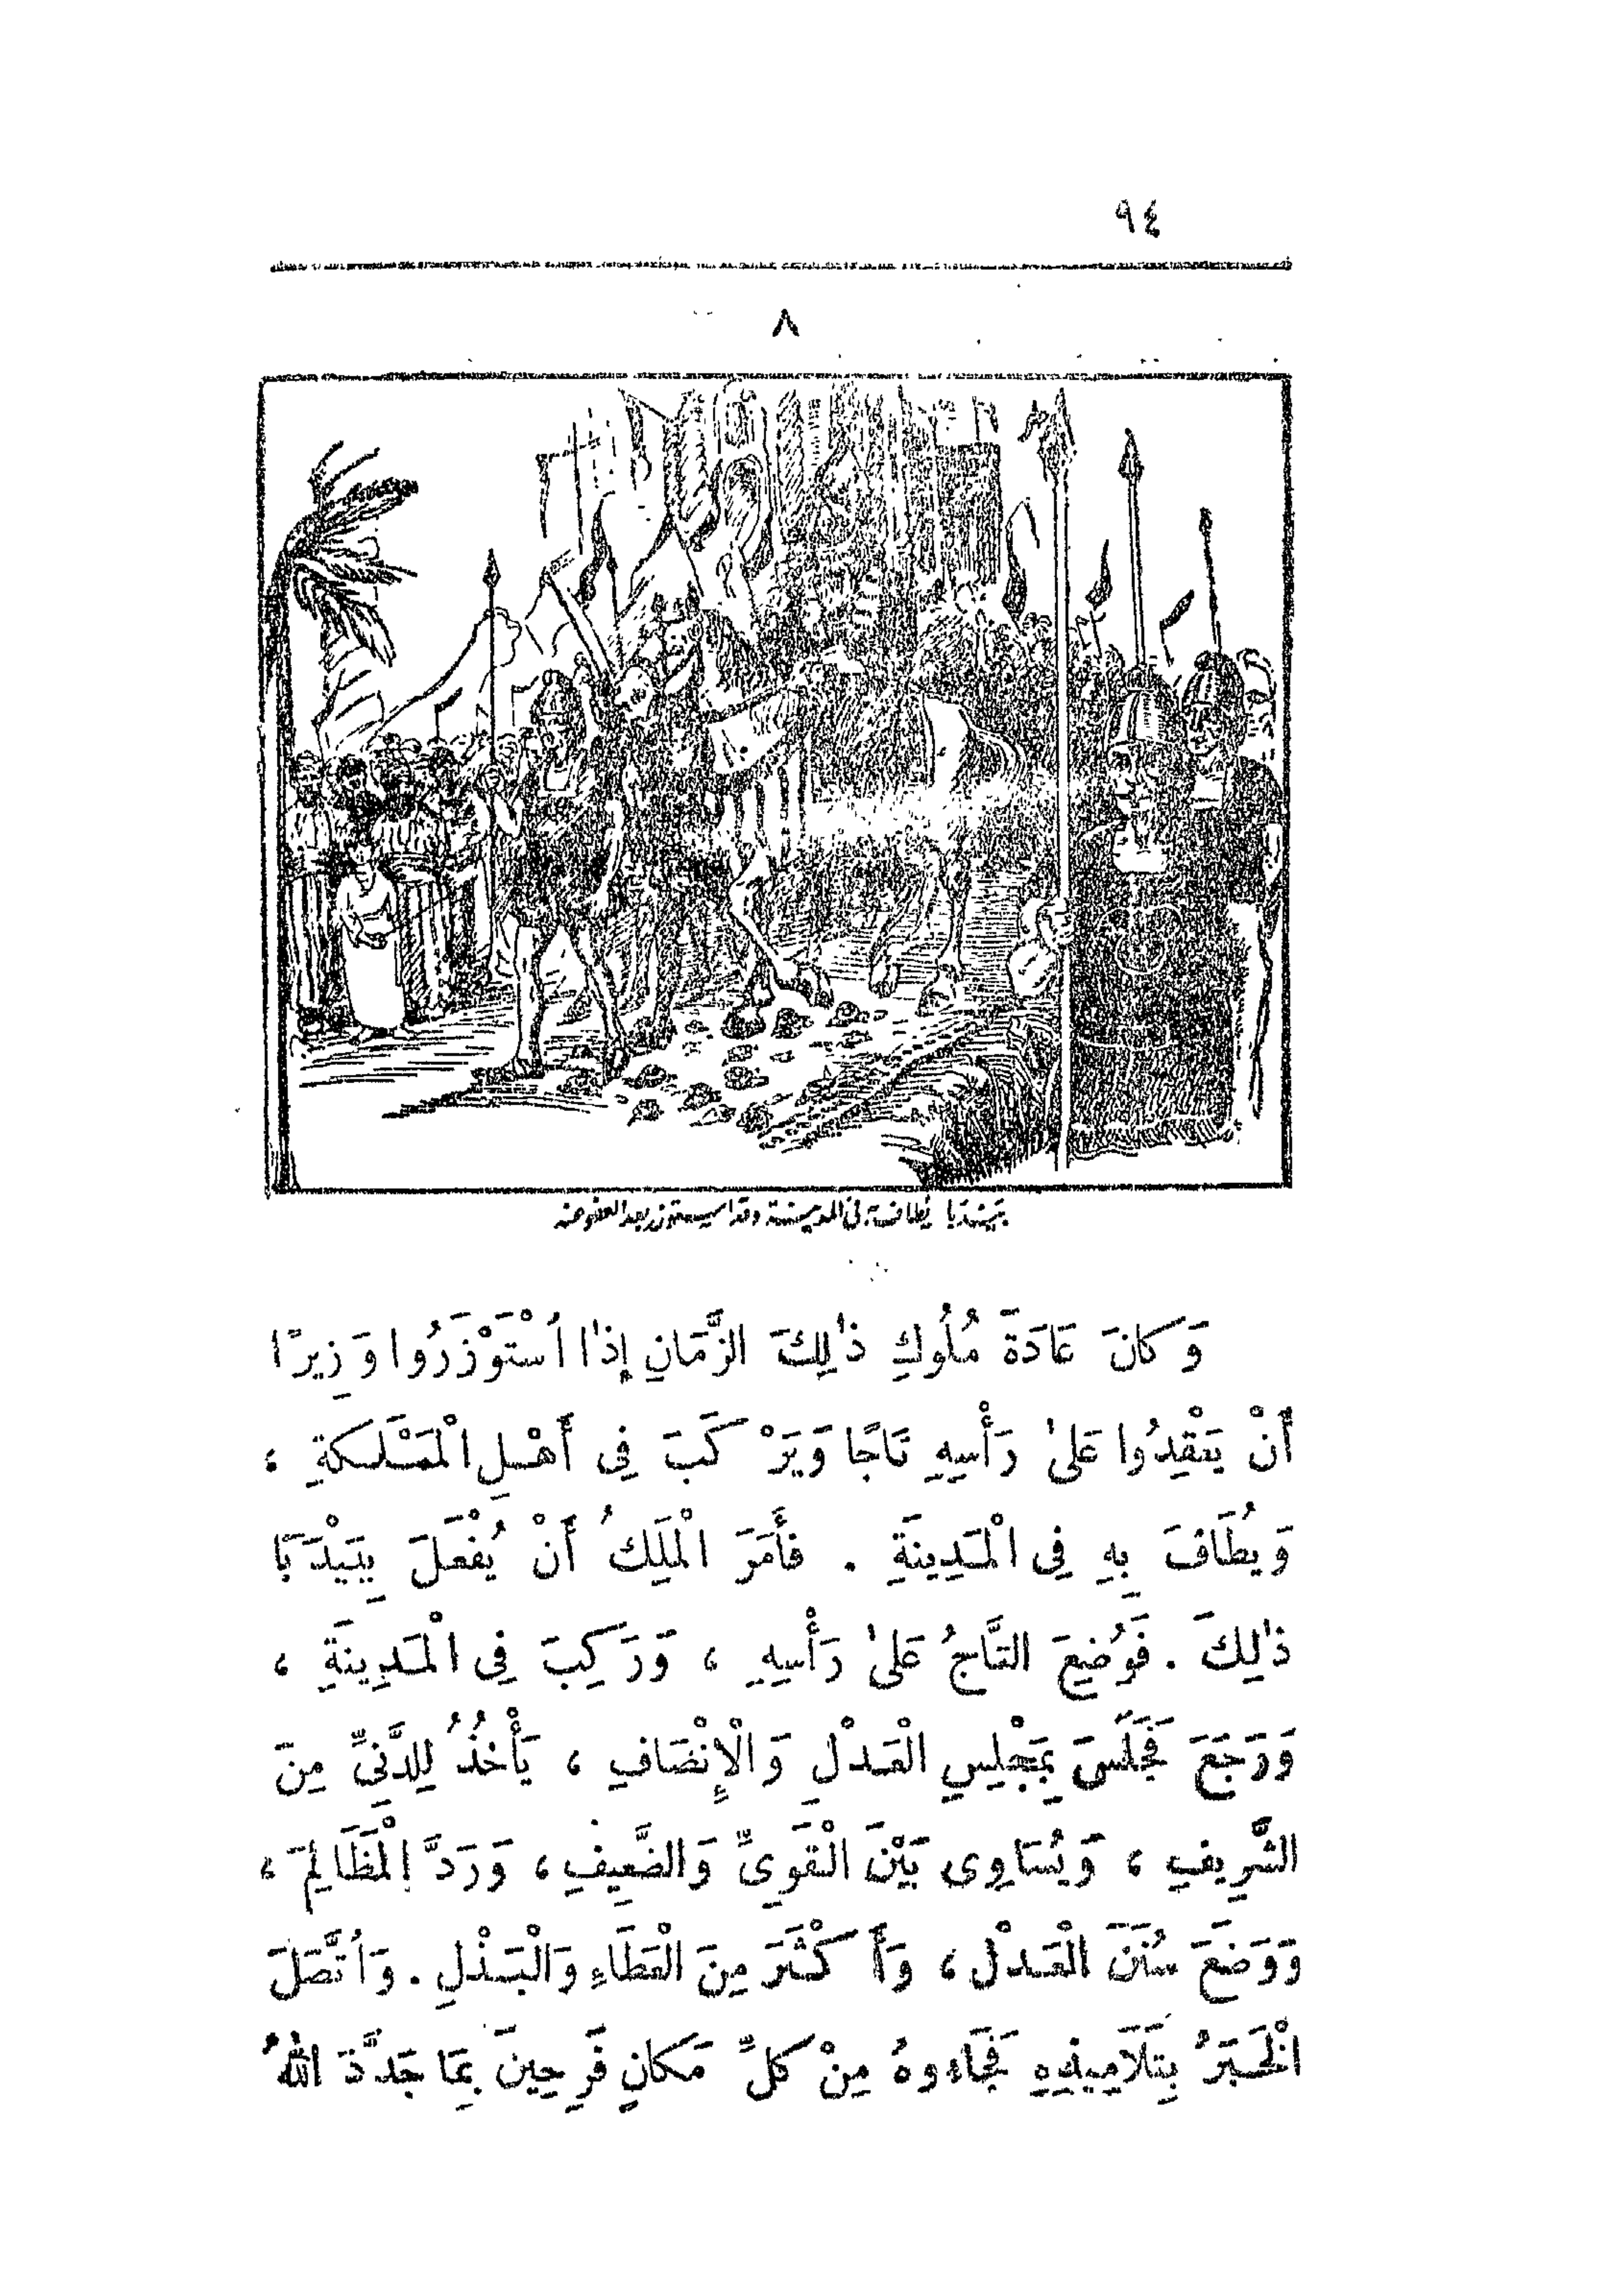 ٩٤
٨
بَيْدَبَا يُطاف به فى المدينة وقد استوزر بعد العفو عنه
وَكانَ عَادَةَ مُلُوكِ ذٰلِكَ الزَّمَانِ إِذٰا اُسْتَوْزَرُوا وَزِيرًا
أَنْ يَعْقِدُوا عَلىٰ رَأْسِهِ تَاجًا وَيَرْكَبَ فِى أَهْلِ الْمَمْلَكةِ ،
وَيُطَافَ بِهِ فِى الْمَدِينَةِ . فأَمَرَ الْمَلِكُ أَنْ يُفْعَلَ بِبَيْدَبَا
ذٰلِكَ . فَوُضِعَ التَّاجُ عَلىٰ رَأْسِهِ ، وَرَكِبَ فِى الْمَدِينَةِ ،
وَرَجَعَ فَجَلَسَ بِمَجْلِسِ الْعَدْلِ وَالْإِنْصَافِ ، يَأْخُذُ لِلدَّنِىِّ مِنَ
الشَّرِيفِ ، وَيُسَاوِى بَيْنَ الْقَوِىِّ وَالضَّعِيفِ ، وَرَدَّ الْمَظَالِمَ ،
وَوَضَعَ سُنَنَ الْعَدْلِ ، وَأَكْثَرَ مِنَ الْعَطَاءِ وَالْبَذْلِ . وَاُتَّصَلَ
الْخَبَرُ بِتَلَامِيذِهِ فَجَاءوهُ مِنْ كلِّ مَكانٍ فَرِحِينَ بِمَا جَدَّدَ اللهُ